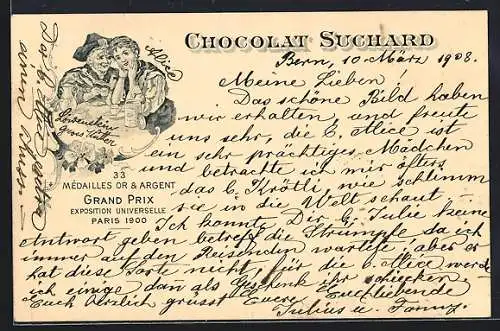 CHOCOLAT SUCHARD
Bern, 10. März 1908.
Meine Lieben!
Das schöne Bild haben
wir erhalten, und freute
uns sehr, die b. Alice ist
ein sehr prächtiges Mädchen
und betrachte ich mir öfters
das b. Krötli, wie schlimm
sie in die Welt schaut
Ich konnte Dir G. Julie keine
Antwort geben betreff der Strümpfe da ich
immer auf den Reisenden wartete, aber er
hat diese Sorte nicht, für die b. Alice werde
ich einige dan als Geschenk Ihr schicken
Euch herzlich grüsst Euere Euch liebende
Julius u. Fanny.
Alice
gross Papa
33
MÉDAILLES OR & ARGENT
GRAND PRIX
EXPOSITION UNIVERSELLE
PARIS 1900
Der b. Alice
einen Kuss.